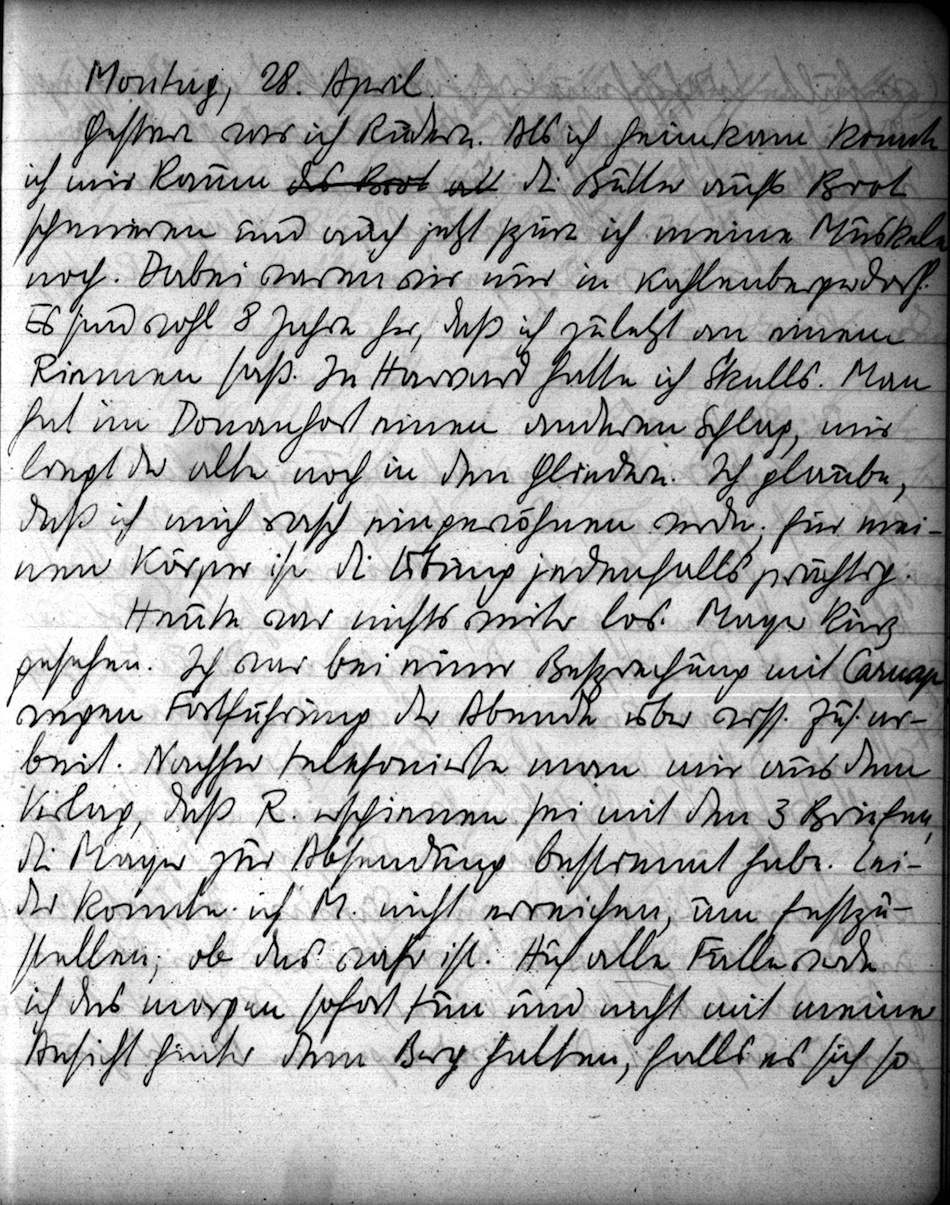 Montag, 28. April.
Gestern war ich Rudern. Als ich heimkam konnte
ich mir kaum das Brot die Butter aufs Brot
schmieren und auch jetzt spüre ich meine Muskeln
noch. Dabei waren wir nur in Kahlenbergerdorf.
Es sind wohl 8 Jahre her, daß ich zuletzt an einem
Riemen saß. In Harvard hatte ich Skulls. Man
hat im Donauhort einen anderen Schlag, mir
liegt der alte noch in den Gliedern. Ich glaube,
daß ich mich rasch eingewöhnen werde; für mei-
nen Körper ist die Übung jedenfalls prächtig.
Heute war nichts weiter los. Mayer kurz
gesehen. Ich war bei einer Besprechung mit Carnap
wegen Fortführung der Abende über wiss. Zus.ar-
beit. Nachher telefonierte man mir aus dem
Verlag, daß R. erschienen sei mit den 3 Briefen,
die Mayer zur Absendung bestimmt habe. Lei-
der konnte ich M. nicht erreichen, um festzu-
stellen, ob das wahr ist. Auf alle Fälle werde
ich das morgen sofort tun und nicht mit meiner
Ansicht hinter dem Berg halten, falls es sich so